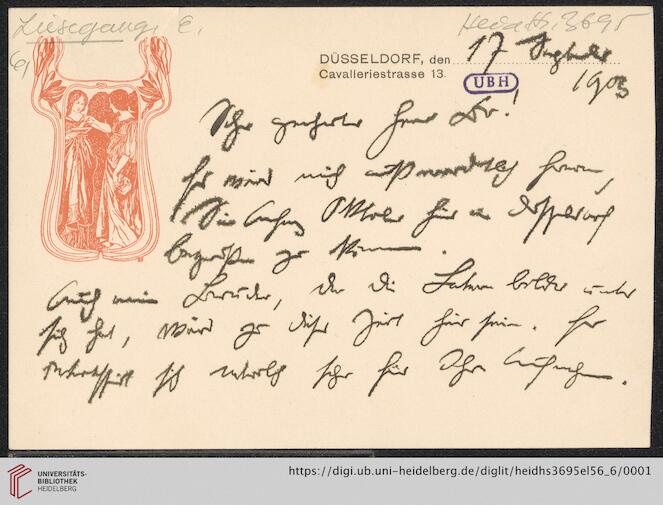 Liesegang, E.
Heid. Hs. 3695
6)
DÜSSELDORF, den 17 September
Cavalleriestrasse 13.
1903
UBH
Sehr geehrter Herr Dr.!
Es wird mich außerordentlich freuen,
Sie Anfang Oktober hier in Düsseldorf
begrüßen zu können.
Auch mein Bruder, der die Laternbilder unter
sich hat, wird zu dieser Zeit hier sein. Er
interessirt sich natürlich sehr für Ihre Aufnahmen.
UNIVERSITÄTS-
BIBLIOTHEK
HEIDELBERG
https://digi.ub.uni-heidelberg.de/diglit/heidhs3695el56_6/0001